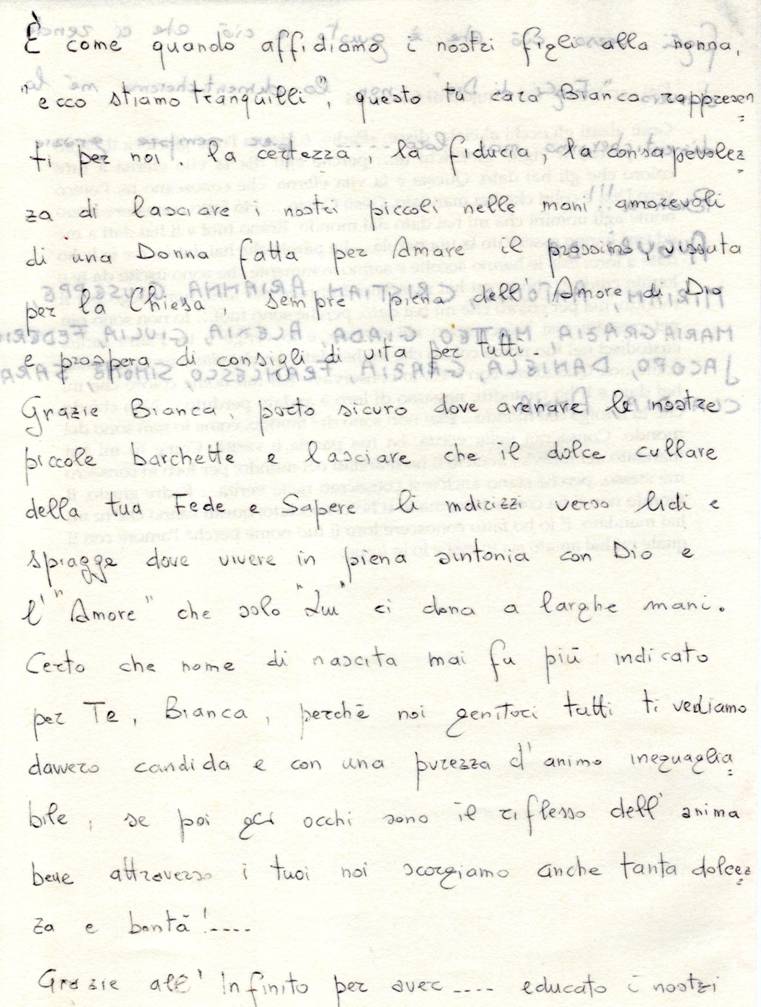 È come quando affidiamo i nostri figli alla nonna,
"ecco stiamo tranquilli", questo tu cara Bianca rappresen=
ti per noi. la certezza, la fiducia, la consapevolez=
za di lasciare i nostri piccoli nelle mani amorevoli
di una Donna fatta per Amare il prossimo, vissuta
per la Chiesa, sempre piena dell'Amore di Dio
e prospera di consigli di vita per tutti.
Grazie Bianca, porto sicuro dove arenare le nostre
piccole barchette e lasciare che il dolce cullare
della tua Fede e Sapere li indirizzi verso lidi e
spiagge dove vivere in piena sintonia con Dio e
l'"Amore" che solo "Lui" ci dona a larghe mani.
Certo che nome di nascita mai fu più indicato
per Te, Bianca, perchè noi genitori tutti ti vediamo
davvero candida e con una purezza d'animo ineguaglia=
bile, se poi gli occhi sono il riflesso dell'anima
bene attraverso i tuoi noi scorgiamo anche tanta dolcez=
za e bontà!....
Grazie all'Infinito per aver.... educato i nostri